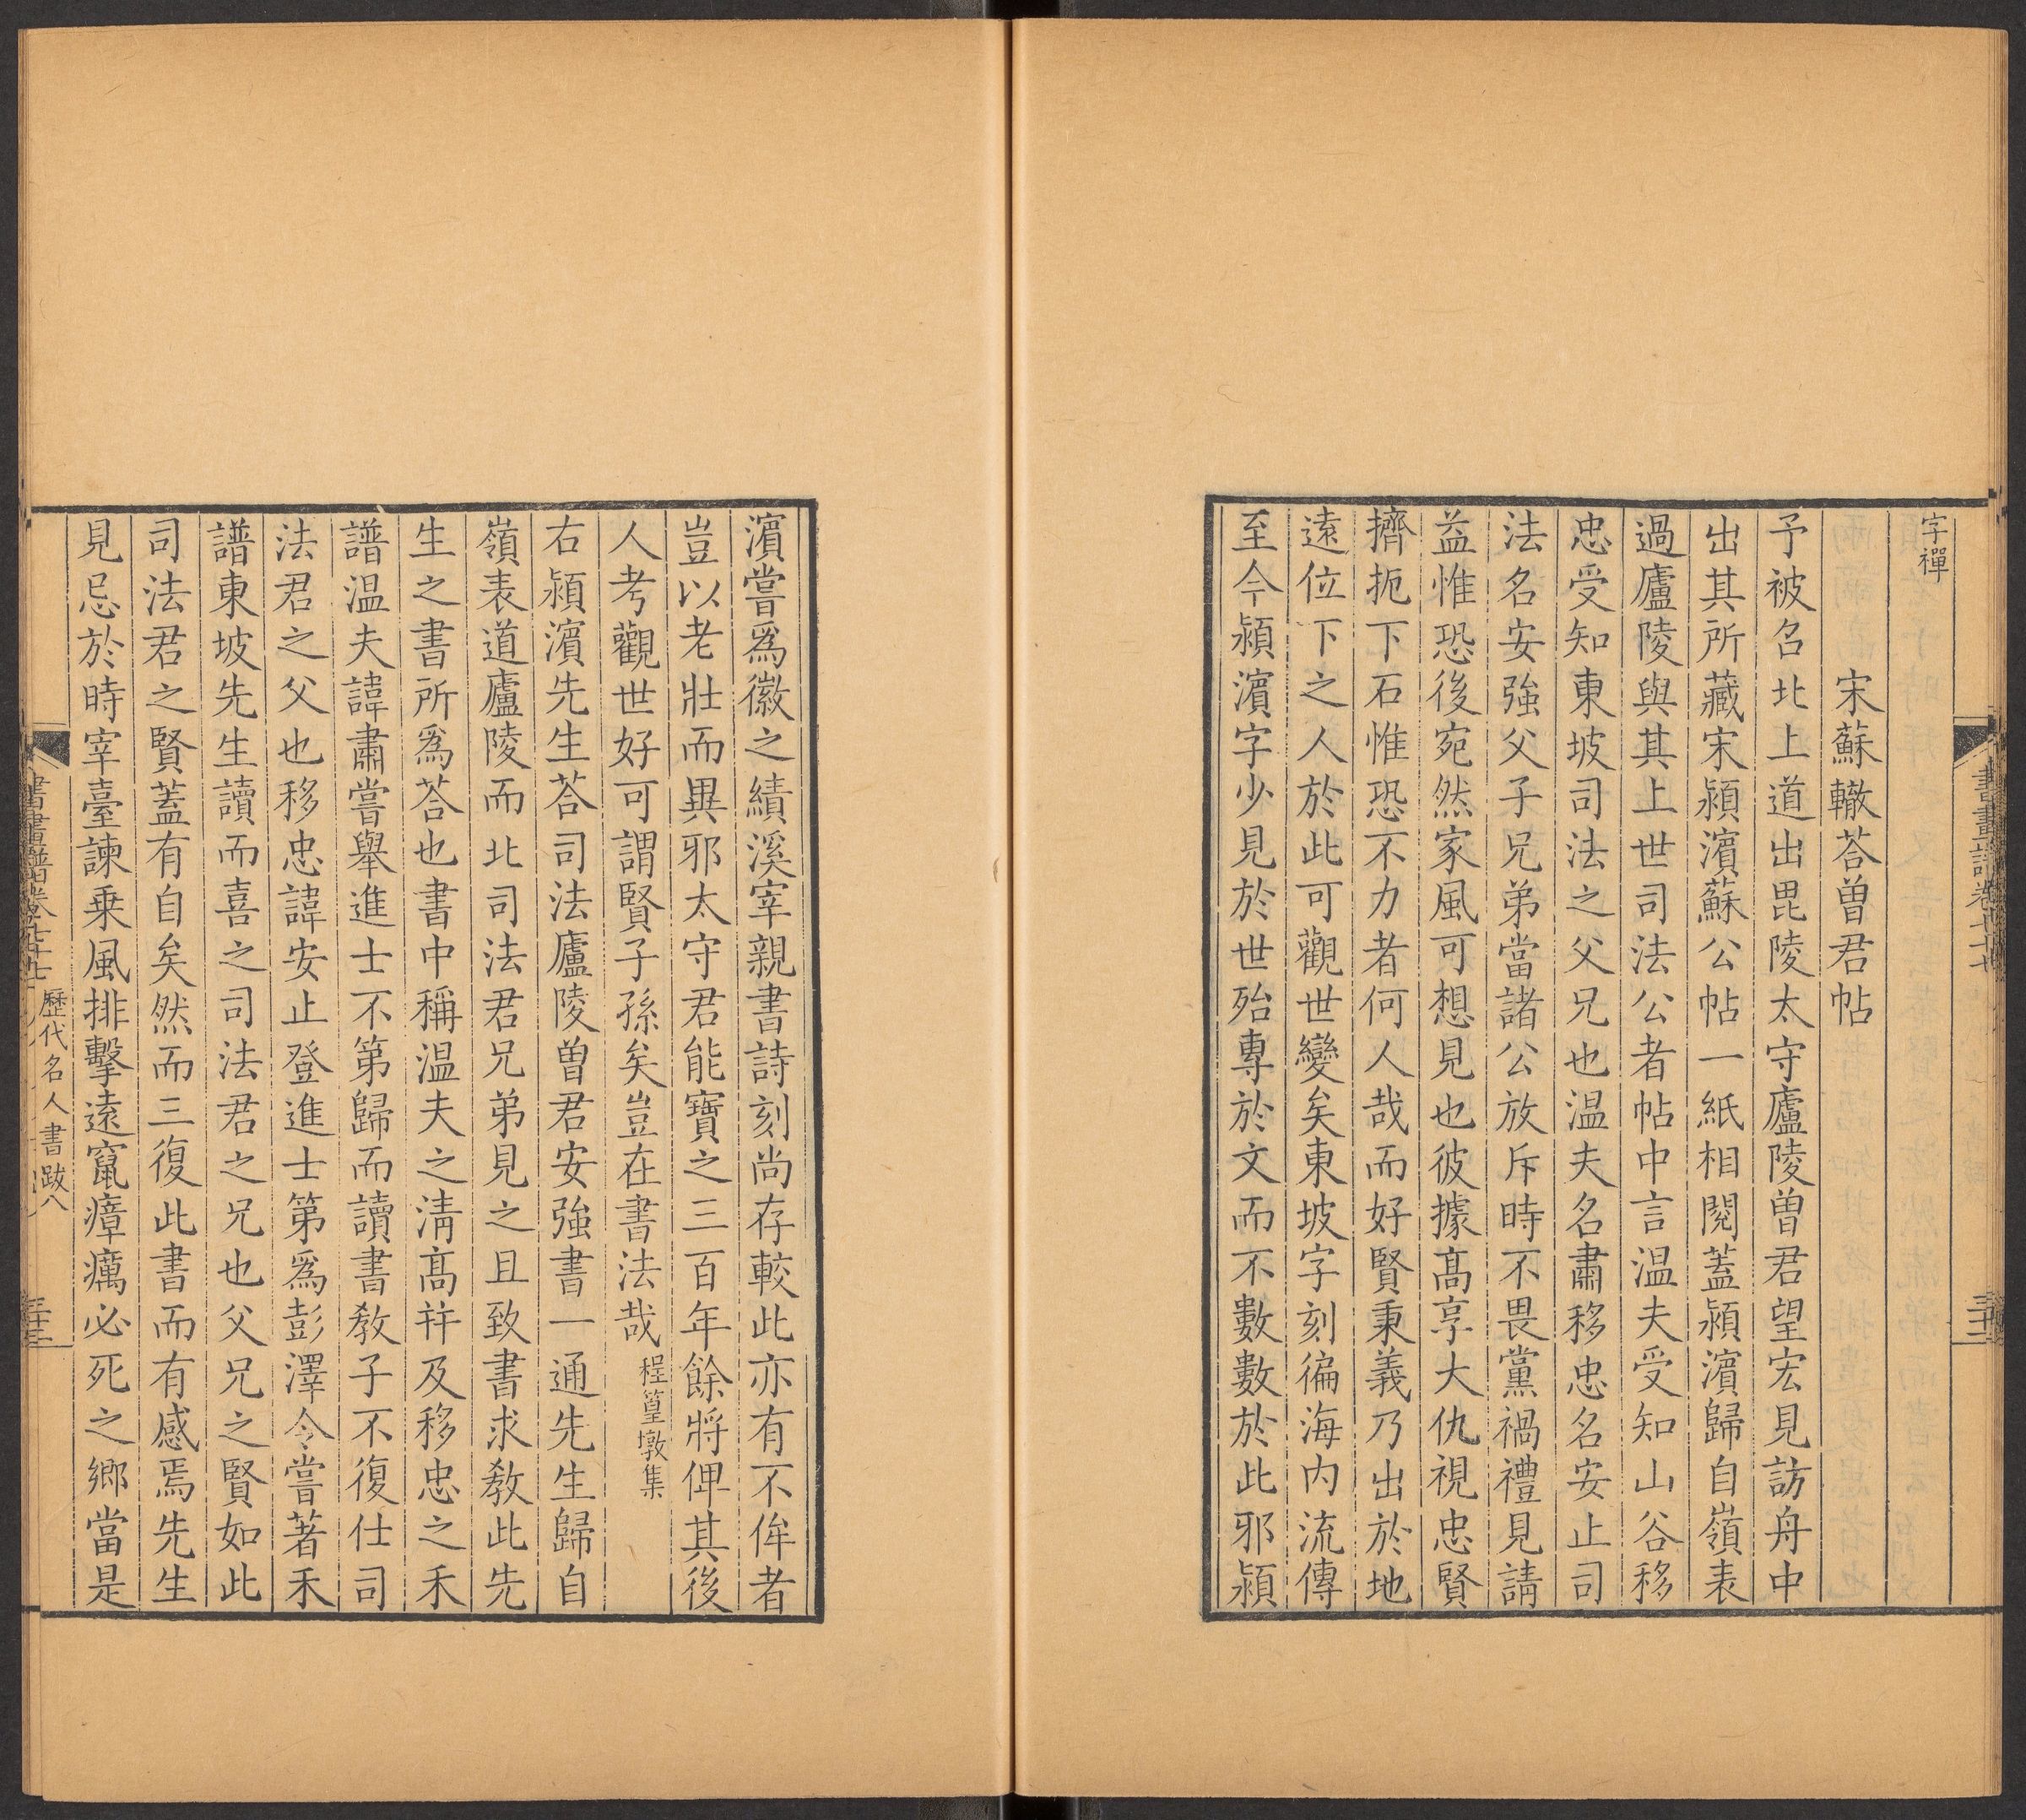 字禪
宋蘇轍荅曾君帖
予被召北上道出毘陵太守廬陵曾君望宏見訪舟中
出其所藏宋潁濵蘇公帖一紙相閱蓋潁濵歸自嶺表
過廬陵與其上世司法公者帖中言温夫受知山谷移
忠受知東坡司法之父兄也温夫名肅移忠名安止司
法名安強父子兄弟當諸公放斥時不畏黨禍禮見請
益惟恐後宛然家風可想見也彼據髙享大仇視忠賢
擠扼下石惟恐不力者何人哉而好賢秉義乃出於地
遠位下之人於此可觀世變矣東坡字刻徧海内流傳
至今潁濵字少見於世殆專於文而不數數於此邪潁
濵嘗爲徽之績溪宰親書詩刻尚存較此亦有不侔者
豈以老壯而異邪太守君能寶之三百年餘將俾其後
人考觀世好可謂賢子孫矣豈在書法哉 程篁墩集
右潁濵先生荅司法廬陵曾君安強書一通先生歸自
嶺表道廬陵而北司法君兄弟見之且致書求敎此先
生之書所爲荅也書中稱温夫之清髙祥及移忠之禾
譜温夫諱肅嘗舉進士不第歸而讀書敎子不復仕司
法君之父也移忠諱安止登進士第爲彭澤令嘗著禾
譜東坡先生讀而喜之司法君之兄也父兄之賢如此
司法君之賢蓋有自矣然而三復此書而有感焉先生
見忌於時宰臺諫乗風排擊遠竄瘴癘必死之鄉當是
歷代名人書跋八